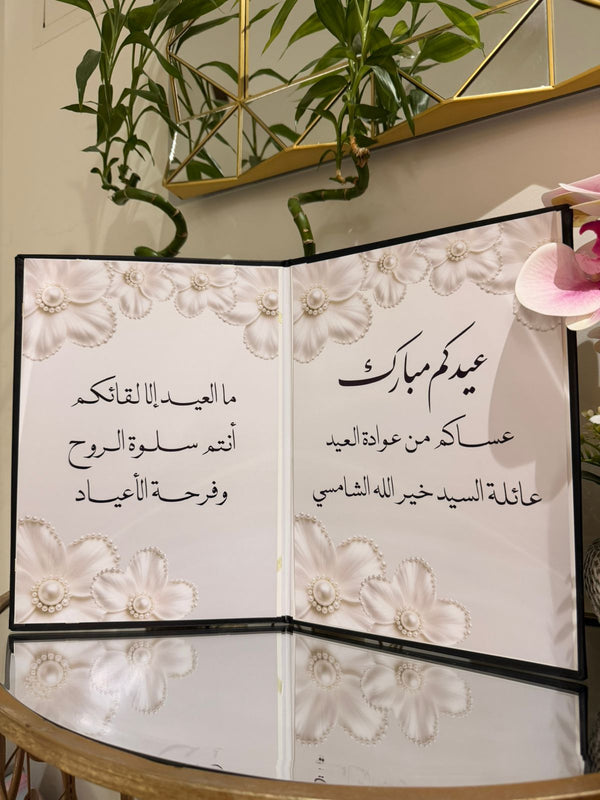 عيدكم مبارك
عساكم من عوادة العيد
عائلة السيد خير الله الشامسي
ما العيد إلا لقائكم
أنتم سلوة الروح
وفرحة الأعياد